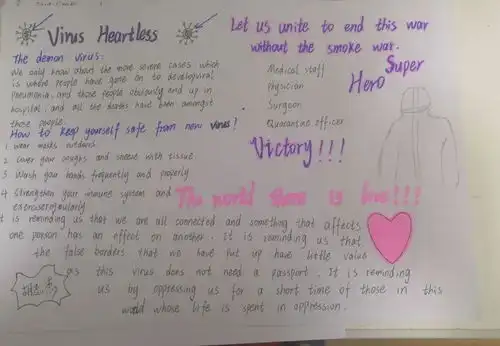 Virus Heartless
The demon virus:
We only know about the more severe cases which
is where people have gone on to develop viral
pneumonia, and those people obviously end up in
hospital, and all the deaths have been amongst
those people.
How to keep yourself safe from new virus?
1 Wear masks outdoors.
2 Cover your coughs and sneeze with tissue.
3 Wash your hands frequently and properly
4 Strengthen your immune system and
exercise regularly
Let us unite to end this war
without the smoke war.
Medical staff
Physician
Surgeon
Quarantine officer
Super
Hero
Victory!!!
The world there is love!!!
It is reminding us that we are all connected and something that affects
one person has an effect on another. It is reminding us that
the false borders that we have put up have little value
as this virus does not need a passport. It is reminding
us by oppressing us for a short time of those in this
world whose life is spent in oppression.